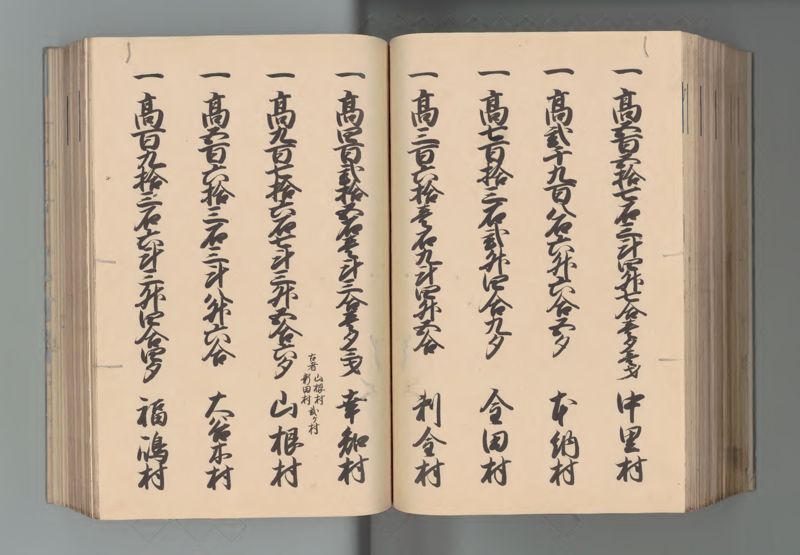 一 高五百五拾七石三斗四升七合壱夕壱才 中里村
一 高弐千九百八石六升六合五夕 本納村
一 高七百拾三石弐升四合九夕 金田村
一 高三百六拾壱石九斗四升五合 利金村
一 高四百弐拾五石壱斗三合壱夕二才 幸知村
古者 山根村 新田村 弐ヶ村
一 高九百七拾六石七斗三升五合六夕 山根村
一 高五百六拾三石三斗八升六合 大谷木村
一 高百九拾三石六斗三升四合四夕 福嶋村